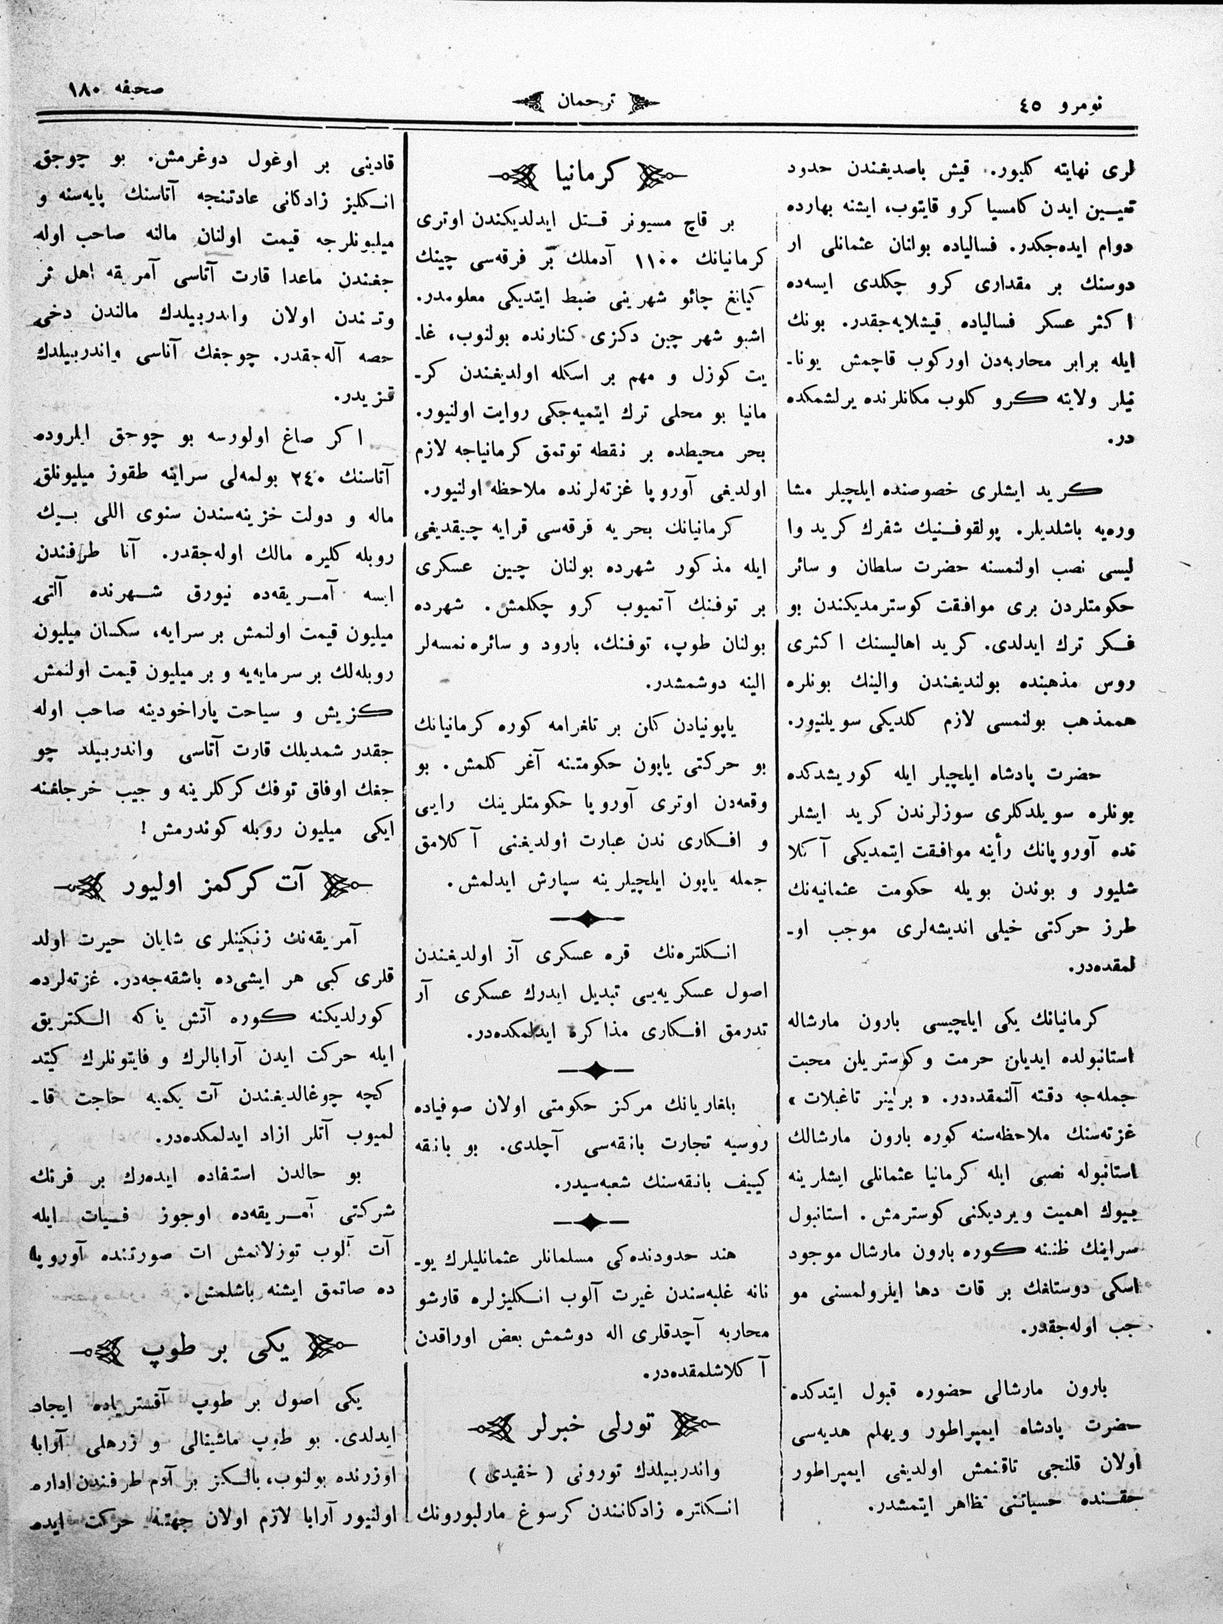 نومرو ٤٥
ترجمان
صحیفه ١٨٠
لری نهایته کلیور. قیش باصدیغندن حدود
تعیـین ایدن کامسیا کرو قایتوب، ایشنه بهارده
دوام ایده‌جکدر. فسالیاده بولنان عثمانلی ار
دوسنك بر مقداری کرو چکلدی ایسه‌ده
اکثر عسکر فسالیاده قیشلایه‌جقدر. بونك
ایله برابر محاربه‌دن اورکوب قاچمش یونا-
نیلر ولایته کرو کلوب مکانلرنده یرلشمکده
در.
کرید ایشلری خصوصنده ایلچیلر مشا
وره‌یه باشلدیلر. پولقوفنیك شفرك کرید وا
لیسی نصب اولنمسنه حضرت سلطان و سائر
حکومتلردن بری موافقت کوسترمدیکندن بو
فـکر ترك ایدلدی. کرید اهالیسنك اکثری
روس مذهبنده بولندیغندن والینك بونلره
هممذهب بولنمسی لازم کلدیکی سویلنیور.
حضرت پادشاه ایلچیلر ایله کوریشدکده
بونلره سویلدکلری سوزلرندن کرید ایشلر
نده آوروپانك رأینه موافقت ایتمدیکی آکلا
شلیور و بوندن بویله حکومت عثمانیه‌نك
طرز حرکتی خیلی اندیشه‌لری موجب او-
لمقده‌در.
کرمانیانك یکی ایلچیسی بارون مارشاله
استانبولده ایدیان حرمت و کوستریلن محبت
جمله‌جه دقته آلنمقده‌در. « برلینر تاغبلات »
غزته‌سنك ملاحظه‌سنه کوره بارون مارشالك
استانبوله نصبی ایله کرمانیا عثمانلی ایشلرینه
بیوك اهمیت ویردیکنی کوسترمش. استانبول
سراینك ظننه کوره بارون مارشال موجود
اسکی دوستلغك بر قات دها ایلرولمسنی مو
جب اوله‌جقدر.
بارون مارشالی حضوره قبول ایتدکده
حضرت پادشاه ایمپراطور ویهلم هدیه‌سی
اولان قلنجی تاقنمش اولدیغی ایمپراطور
حقـنده حسیاتنی تظاهر ایتمشدر.
کرمانیا
بر قاچ مسیونر قـتل ایدلدیکندن اوتری
کرمانیانك ١١٠٠ آدملك بر فرقه‌سی چینك
کیانغ چائو شهرینی ضبط ایتدیکی معلومدر.
اشبو شهر چین دکزی کنارنده بولنوب، غا-
یت کوزل و مهم بر اسکله اولدیغندن کر-
مانیا بو محلی ترك ایتمیه‌جکی روایت اولنیور.
بحر محیطده بر نقطه توتمق کرمانیاجه لازم
اولدیغی آوروپا غزته‌لرنده ملاحظه اولنیور.
کرمانیانك بحریه فرقه‌سی قرایه چیقدیغی
ایله مذکور شهرده بولنان چین عسکری
بر توفنك آتمیوب کرو چکلمش. شهرده
بولنان طوپ، توفنك، بارود و سائره نمسه‌لر
الینه دوشمشدر.
یاپونیادن کلن بر تلغرامه کوره کرمانیانك
بو حرکتی یاپون حکومتنه آغر کلمش. بو
وقعه‌دن اوتری آوروپا حکومتلرینك رایی
و افـکاری ندن عبارت اولدیغنی آکلامق
جمله یاپون ایلچیلرینه سپارش ایدلمش.
انـکلتره‌نك قره عسکری آز اولدیغندن
اصول عسکریه‌یی تبدیل ایدرك عسکری آر
تدرمق افـکاری مذاکره ایدلمکده‌در.
بلغاریانك مرکز حکومتی اولان صوفیاده
روسیه تجارت بانقه‌سی آچلدی. بو بانقه
کییف بانقه‌سنك شعبه‌سیدر.
هند حدودنده‌کی مسلمانلر عثمانلیلرك یو-
نانه غلبه‌سندن غیرت آلوب انـکلیزلره قارشو
محاربه آچدقلری اله دوشمش بعض اوراقدن
آکلاشلمقده‌در.
تورلی خبرلر
واندربیلدك تورونی ( خفیدی )
انـکلتره زادکانندن کرسوغ مارلبورونك
قادینی بر اوغول دوغرمش. بو چوجق
انـکلیز زادکانی عادتنجه آتاسنك پایه‌سنه و
میلیونلرجه قیمت اولنان مالنه صاحب اوله
جغندن ماعدا قارت آتاسی آمریقه اهل ثر
وتـندن اولان واندربیلدك مالندن دخی
حصه آله‌جقدر. چوجغك آناسی واندربیلدك
قـزیدر.
اکر صاغ اولورسه بو چوجق ایلروده
آتاسنك ٢٤٠ بولمه‌لی سراینه طقوز میلیونلق
ماله و دولت خزینه‌سندن سنوی اللی بـیك
روبله کلیره مالك اوله‌جقدر. آنا طرفندن
ایسه آمـریقه‌ده نیورق شـهرنده آلتی
میلیون قیمت اولنمش بر سرایه، سکسان میلیون
روبله‌لك بر سرمایه‌یه و بر میلیون قیمت اولنمش
کزیش و سیاحت پاراخودینه صاحب اوله
جقدر شمدیلك قارت آتاسی واندربیلد چو
جغك اوفاق توفك کرکلرینه و جیب خرجلغنه
ایکی میلیون روبله کوندرمش!
آت کرکمز اولیور
آمریقه‌نك زنکینلری شایان حیرت اولد
قلری کبی هر ایشی‌ده باشقه‌جه‌در. غزته‌لرده
کورلدیکنه کوره آتش یاکه الـکتریق
ایله حرکت ایدن آرابالرك و فایتونلرك کیتد
کچه چوغالدیغندن آت یکمیه حاجت قا-
لمیوب آتلر ازاد ایدلمکده‌در.
بو حالدن استفاده ایده‌رك بر فرنك
شرکتی آمـریقه‌ده اوجوز فـیات ایله
آت آلوب توزلانمش ات صورتنده آوروپا
ده صاتمق ایشنه باشلمش.
یکی بر طوپ
یکی اصول بر طوپ آفستریاده ایجاد
ایدلدی. بو طوپ ماشینالی و زرهلی آرابا
اوزرنده بولنوب، یالـکز بر آدم طرفندن اداره
اولنیور آرابا لازم اولان جهتنه حرکت ایده